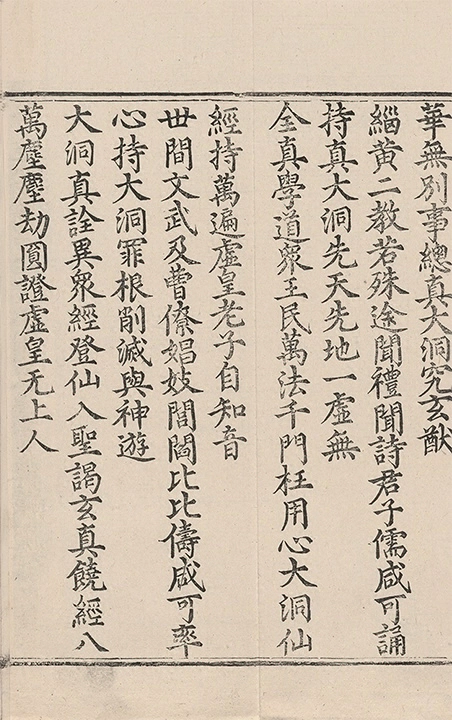 華無別事總真大洞究玄猷
緇黃二教若殊途聞禮聞詩君子儒咸可誦
持真大洞先天先地一虛無
全真學道衆王民萬法千門枉用心大洞仙
經持萬遍虛皇老子自知音
世間文武及曹僚娼妓閭閻比比儔咸可率
心持大洞罪根削滅與神遊
大洞真詮異衆經登仙入聖謁玄真饒經八
萬塵塵劫圓證虛皇无上人